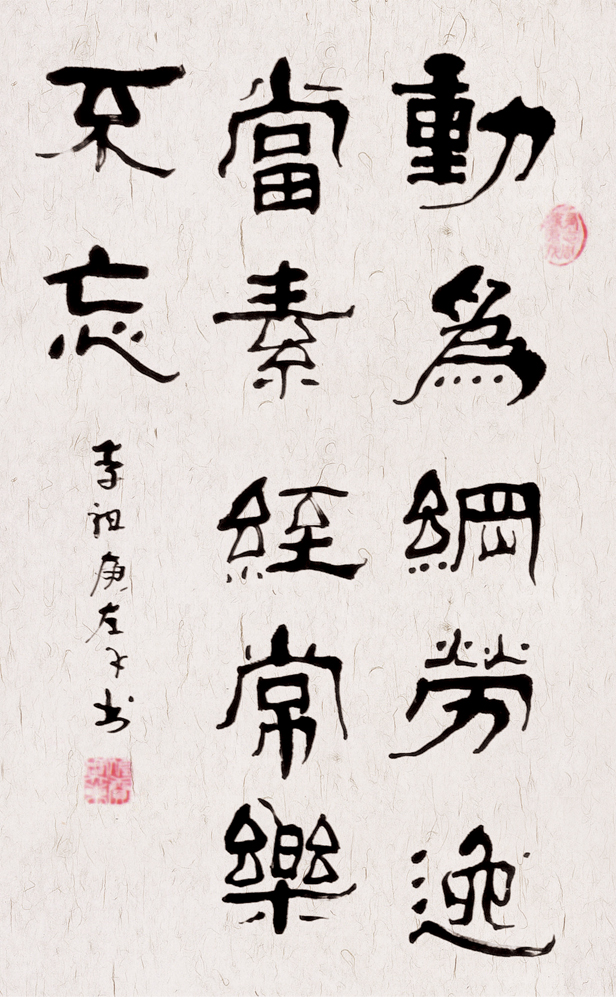 動爲綱勞逸
當素經常樂
不忘
李祖庚左手书